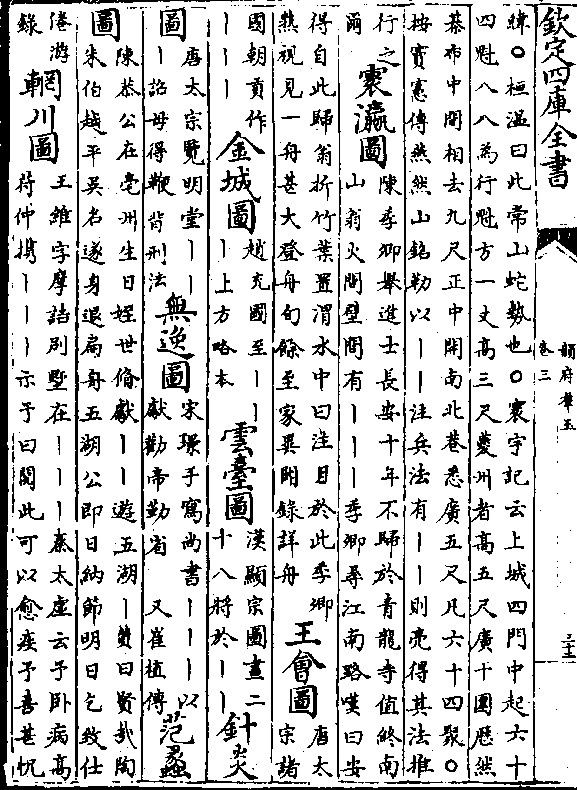 欽定四庫全書
韻府羣玉
卷三
肄〇桓温曰此常山蛇勢也〇寰宇記云上城四門中起六十
四魁八八為行魁方一丈髙三尺䕫州者髙五尺廣十圍厯然
棊布中間相去九尺正中開南北巷悉廣五尺凡六十四聚〇
按竇憲傳燕然山銘勒以丨丨注兵法有丨丨則亮得其法推
行之
爾
寰瀛圖
陳季卿舉進士長安十年不歸於青龍寺值終南
山翁火閣壁間有丨丨丨季卿尋江南路嘆曰安
得自此歸翁折竹葉置渭水中曰注目於此季卿
熟視見一舟甚大登舟旬餘至家異聞錄詳舟
王會圖
唐太
宗諸
國朝貢作
丨丨丨
金城圖
趙充國至丨丨
丨上方略本
雲臺圖
漢顯宗圖畫二
十八將於丨丨
針灸
圖
唐太宗覽明堂丨丨
丨詔毋得鞭背刑法
無逸圖
宋璟手寫尚書丨丨丨以
獻勸帝勤省 又崔植傳
范蠡
圖
陳恭公在亳州生日姪世脩獻丨丨遊五湖丨贊曰賢哉陶
朱伯越平吳名遂身退扁舟五湖公即日納節明日乞致仕
倦游
錄
輞川圖
王維字摩詰别墅在丨丨丨秦太虚云予卧病髙
符仲携丨丨丨示予曰閱此可以愈疾予喜甚恍